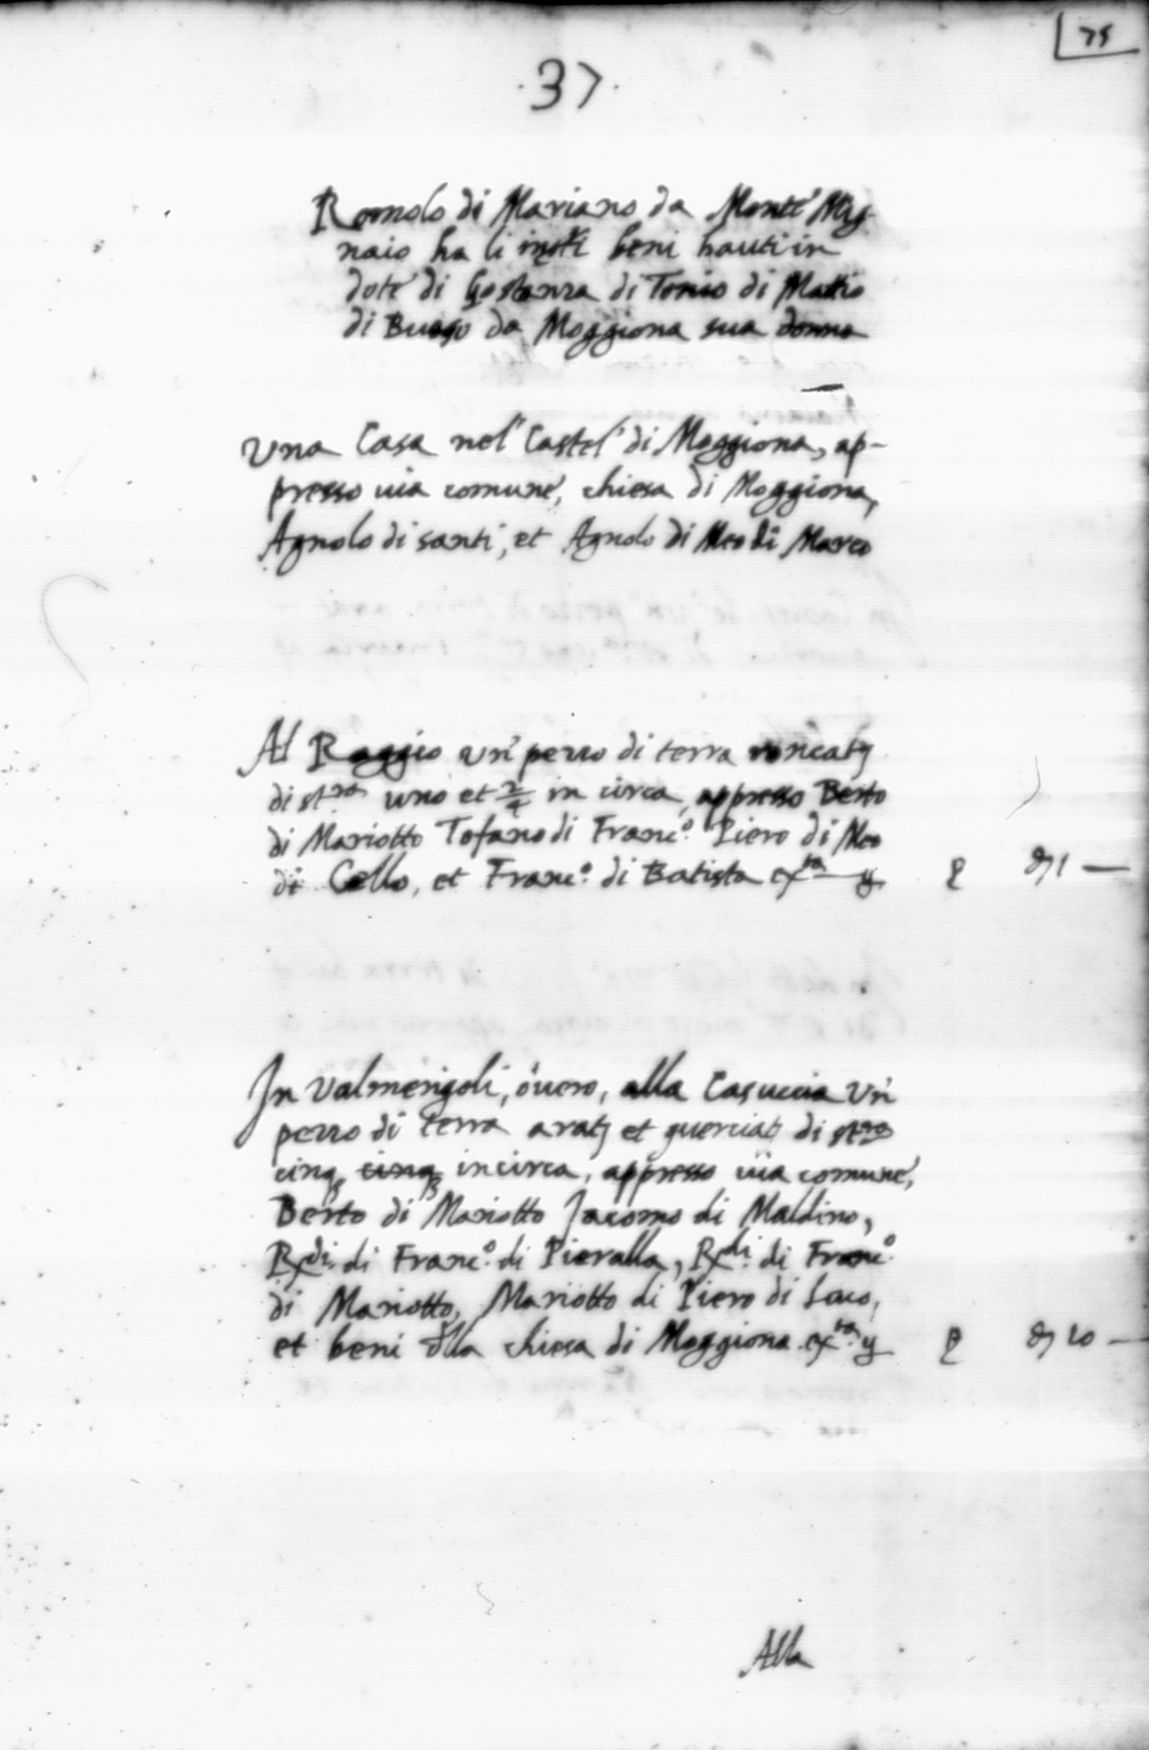 75
.37.
Romolo di Mariano da Monte Mig
naio ha li beni hauti in
dote di Gostanza di Tonio di Mattio
di da Moggiona sua donna
Una Casa nel Castel di Moggiona, ap-
presso uia comune, chiesa di Moggiona,
Agnolo di santi, et Agnolo di Meo di Marco
Al Raggio un pezzo di terra roncatj
di st.ra uno et in circa, appresso Berto
di Mariotto Tofano di Franc.o Piero di Meo
di Cello, et Franc.o di Batista
In Valmerigoli, ouero, alla Casuccia un
pezzo di terra aratj et querciatj di st.ra
cinq cinq incirca, appresso uia comune,
Berto di Mariotto Jacomo di Maldino,
Rx.di di Franc.o di Pieralla, Rx.di di Franc.o
di Mariotto, Mariotto di Piero di
et beni dlla chiesa di Moggiona
Alla